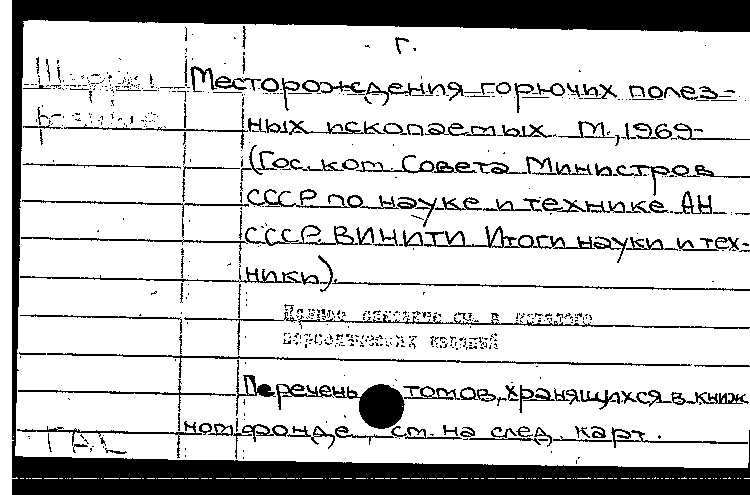 Г.
Месторождения горючих полез-
ных ископаемых М., 1969-
(Гос. ком. Совета Министров
СССР по науке и технике АН
СССР. ВИНИТИ Итоги науки и тех-
ники).
Полное описание см. в каталоге
периодических изданий
Перечень томов, хранящихся в книж
ном фонде, см. на след. карт.